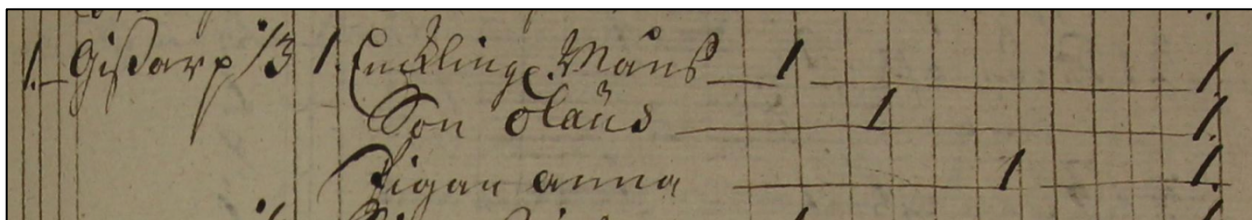 1. Gißarp 1/3 1. Enckling Måns 1 1.
Son Olaus 1 1.
Pigan anna 1 1.